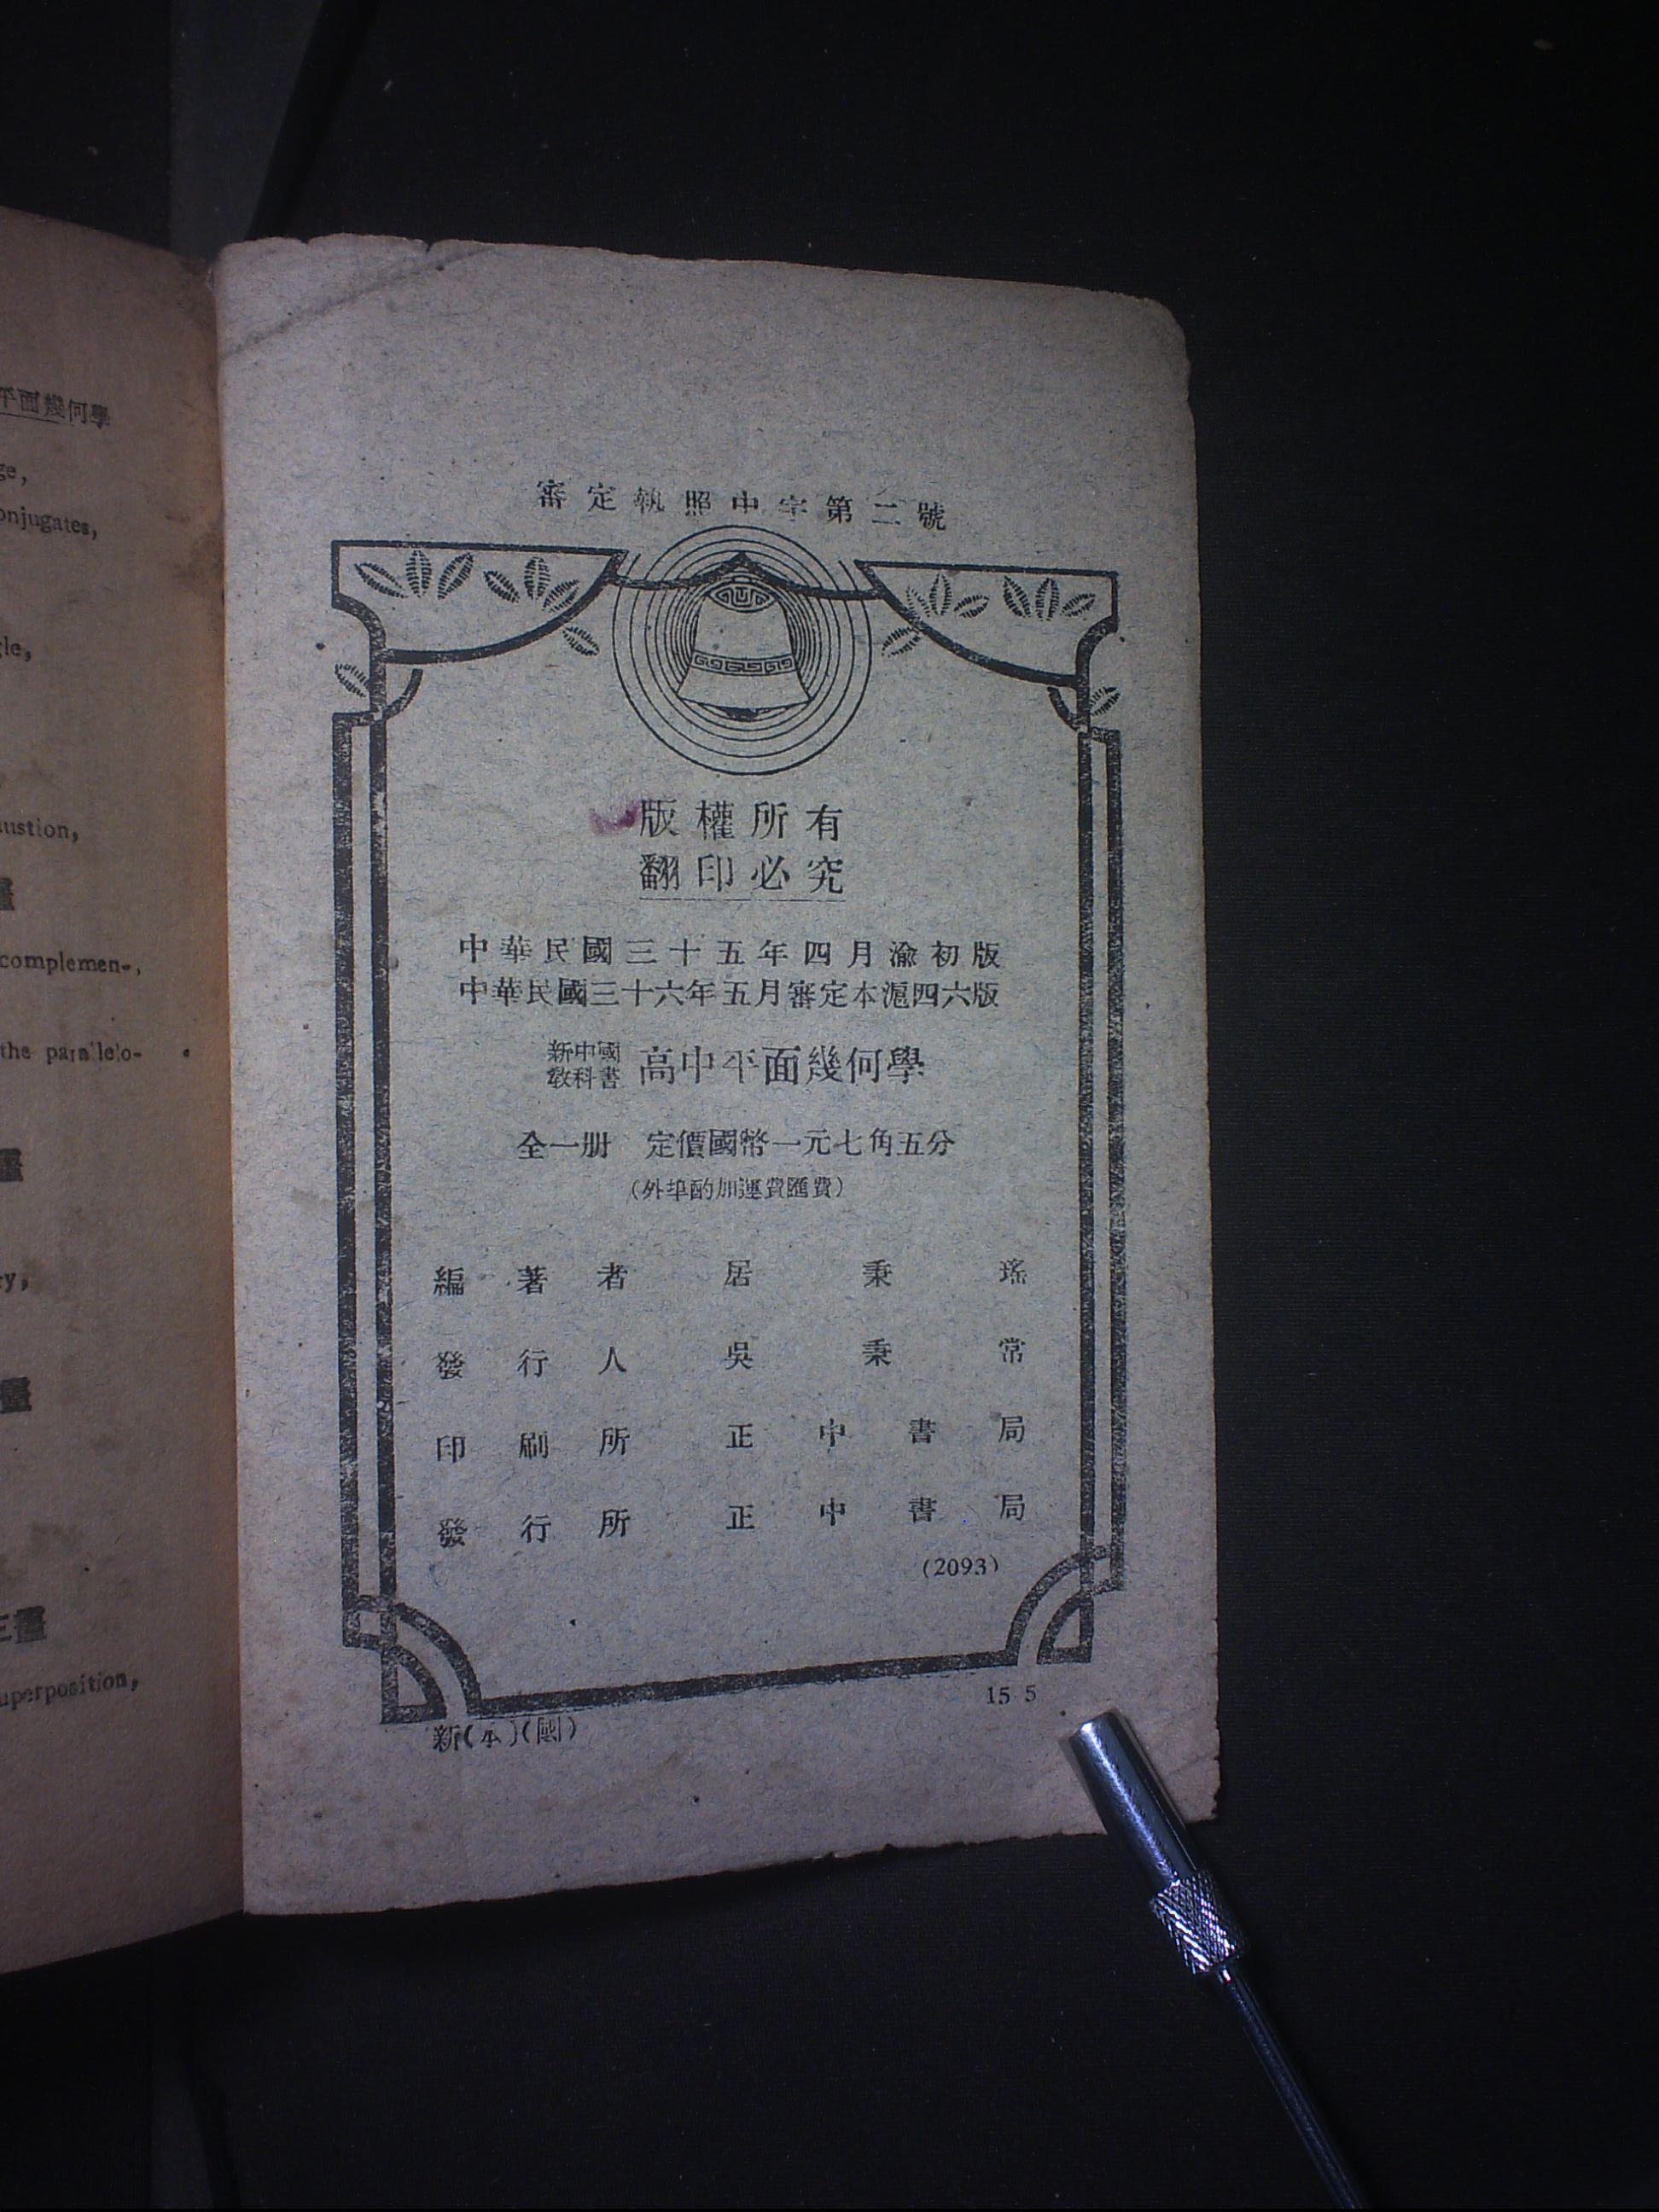 平面幾何學
ge,
onjugates,
gle,
ustion,
畫
complemen-,
the parallelo-
畫
ry,
畫
三畫
uperposition,
審定執照中字第二號
版權所有
翻印必究
中華民國三十五年四月渝初版
中華民國三十六年五月審定本滬四六版
新中國
教科書 高中平面幾何學
全一册 定價國幣一元七角五分
(外埠酌加運費匯費)
編著者 居秉瑤
發行人 吳秉常
印刷所 正中書局
發行所 正中書局
(2093)
15 5
新(本)(國)